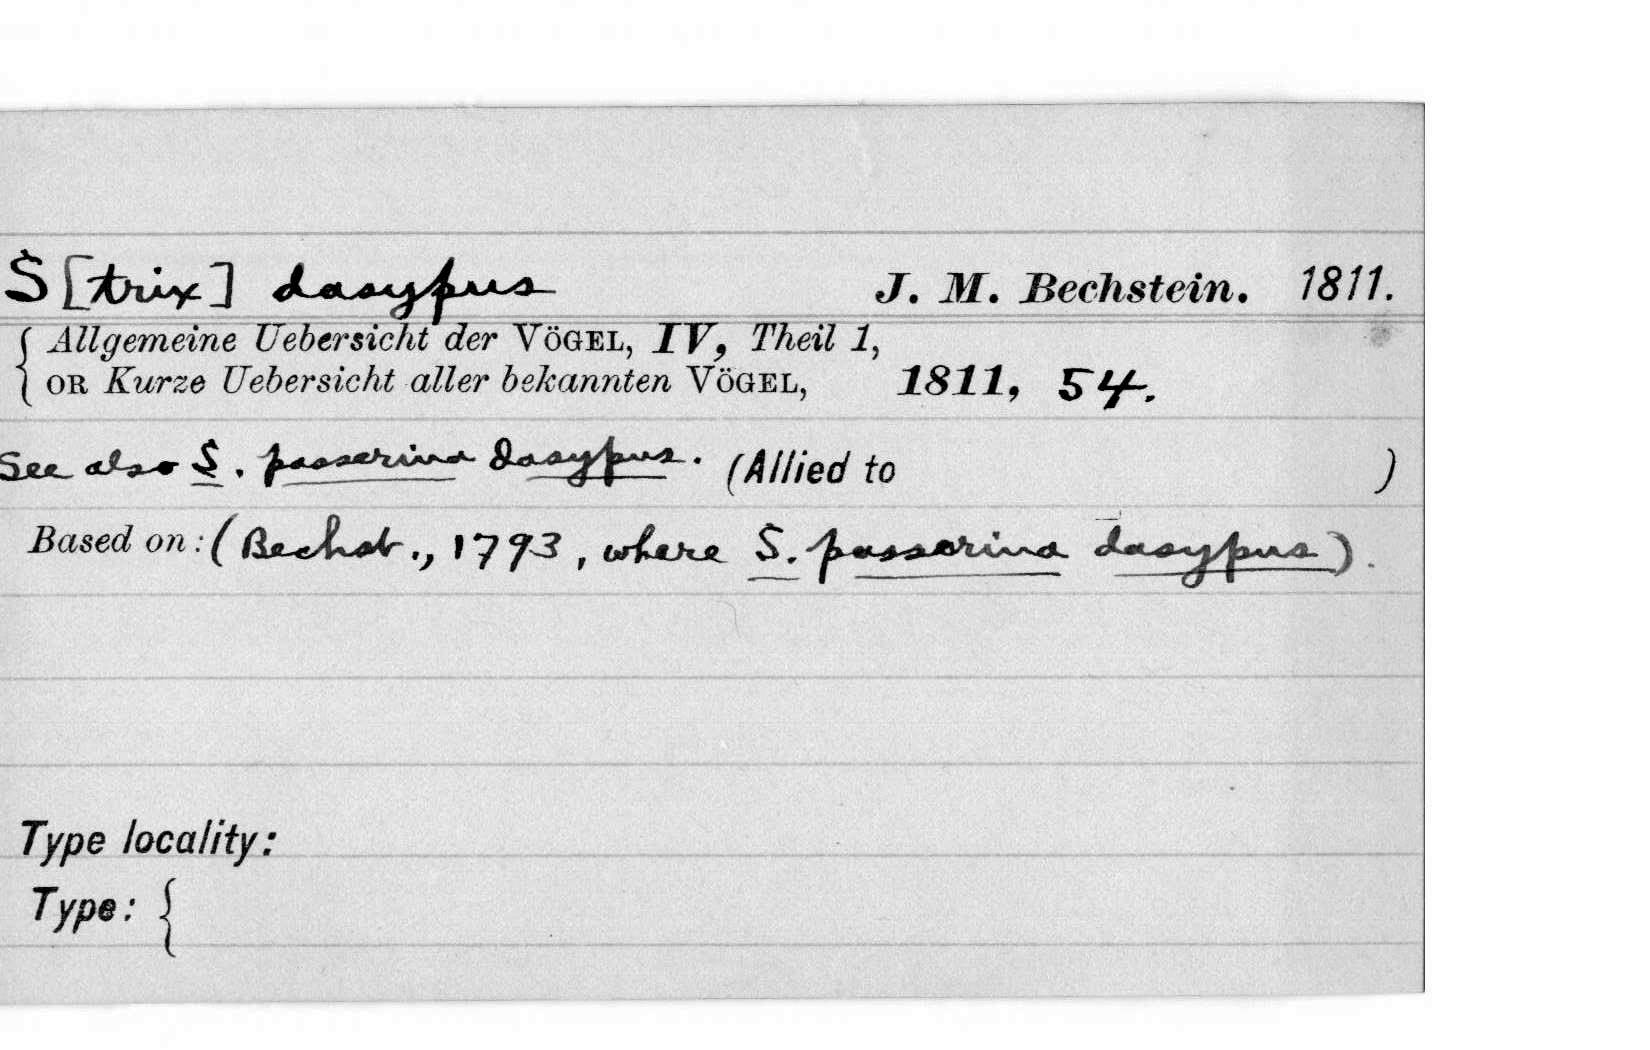 S[trix] dasypus J. M. Bechstein. 1811.
{ Allgemeine Uebersicht der VÖGEL, IV, Theil 1,
OR Kurze Uebersicht aller bekannten VÖGEL, 1811, 54.
See also S. passerina dasypus. (Allied to )
Based on: (Bechst., 1793, where S. passerina dasypus).
Type locality:
Type: {